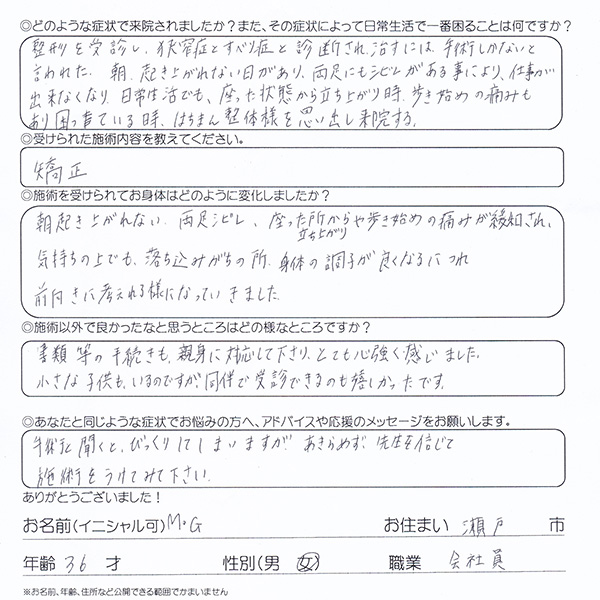 ◎どのような症状で来院されましたか？また、その症状によって日常生活で一番困ることは何ですか？
整形を受診し、狭窄症とすべり症と診断され、治すには、手術しかないと
言われた。朝、起き上がれない日があり、両足にもシビレがある事により、仕事が
出来なくなり、日常生活でも、座った状態から立ち上がり時、歩き始めの痛みも
あり困っている時、はちまん整体様を思い出し来院する。
◎受けられた施術内容を教えてください。
矯正
◎施術を受けられてお身体はどのように変化しましたか？
朝起き上がれない、両足シビレ、座った所から立ち上がりや歩き始めの痛みが緩和され、
気持ちの上でも、落ち込みがちの所、身体の調子が良くなるにつれ
前向きに考えれる様になっていきました。
◎施術以外で良かったなと思うところはどの様なところですか？
書類等の手続きも、親身に対応して下さり、とても心強く感じました。
小さな子供も、いるのですが、同伴で受診できるのも嬉しかったです。
◎あなたと同じような症状でお悩みの方へ、アドバイスや応援のメッセージをお願いします。
手術と聞くと、びっくりしてしまいますが、あきらめず、先生を信じて
施術をうけてみて下さい。
ありがとうございました！
お名前(イニシャル可) M・G お住まい 瀬戸 市
年齢 36 才 性別(男 女) 職業 会社員
※お名前、年齢、住所など公開できる範囲でかまいません